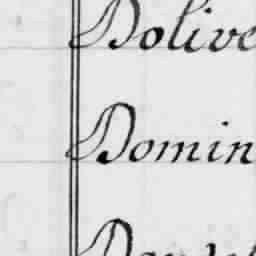 Dolive
Domin